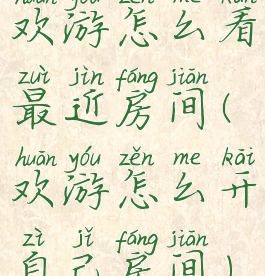 huān yóu zěn me kàn
欢游怎么看
zuì jìn fáng jiān
最近房间(
huān yóu zěn me kāi
欢游怎么开
zì jǐ fáng jiān
自己房间)